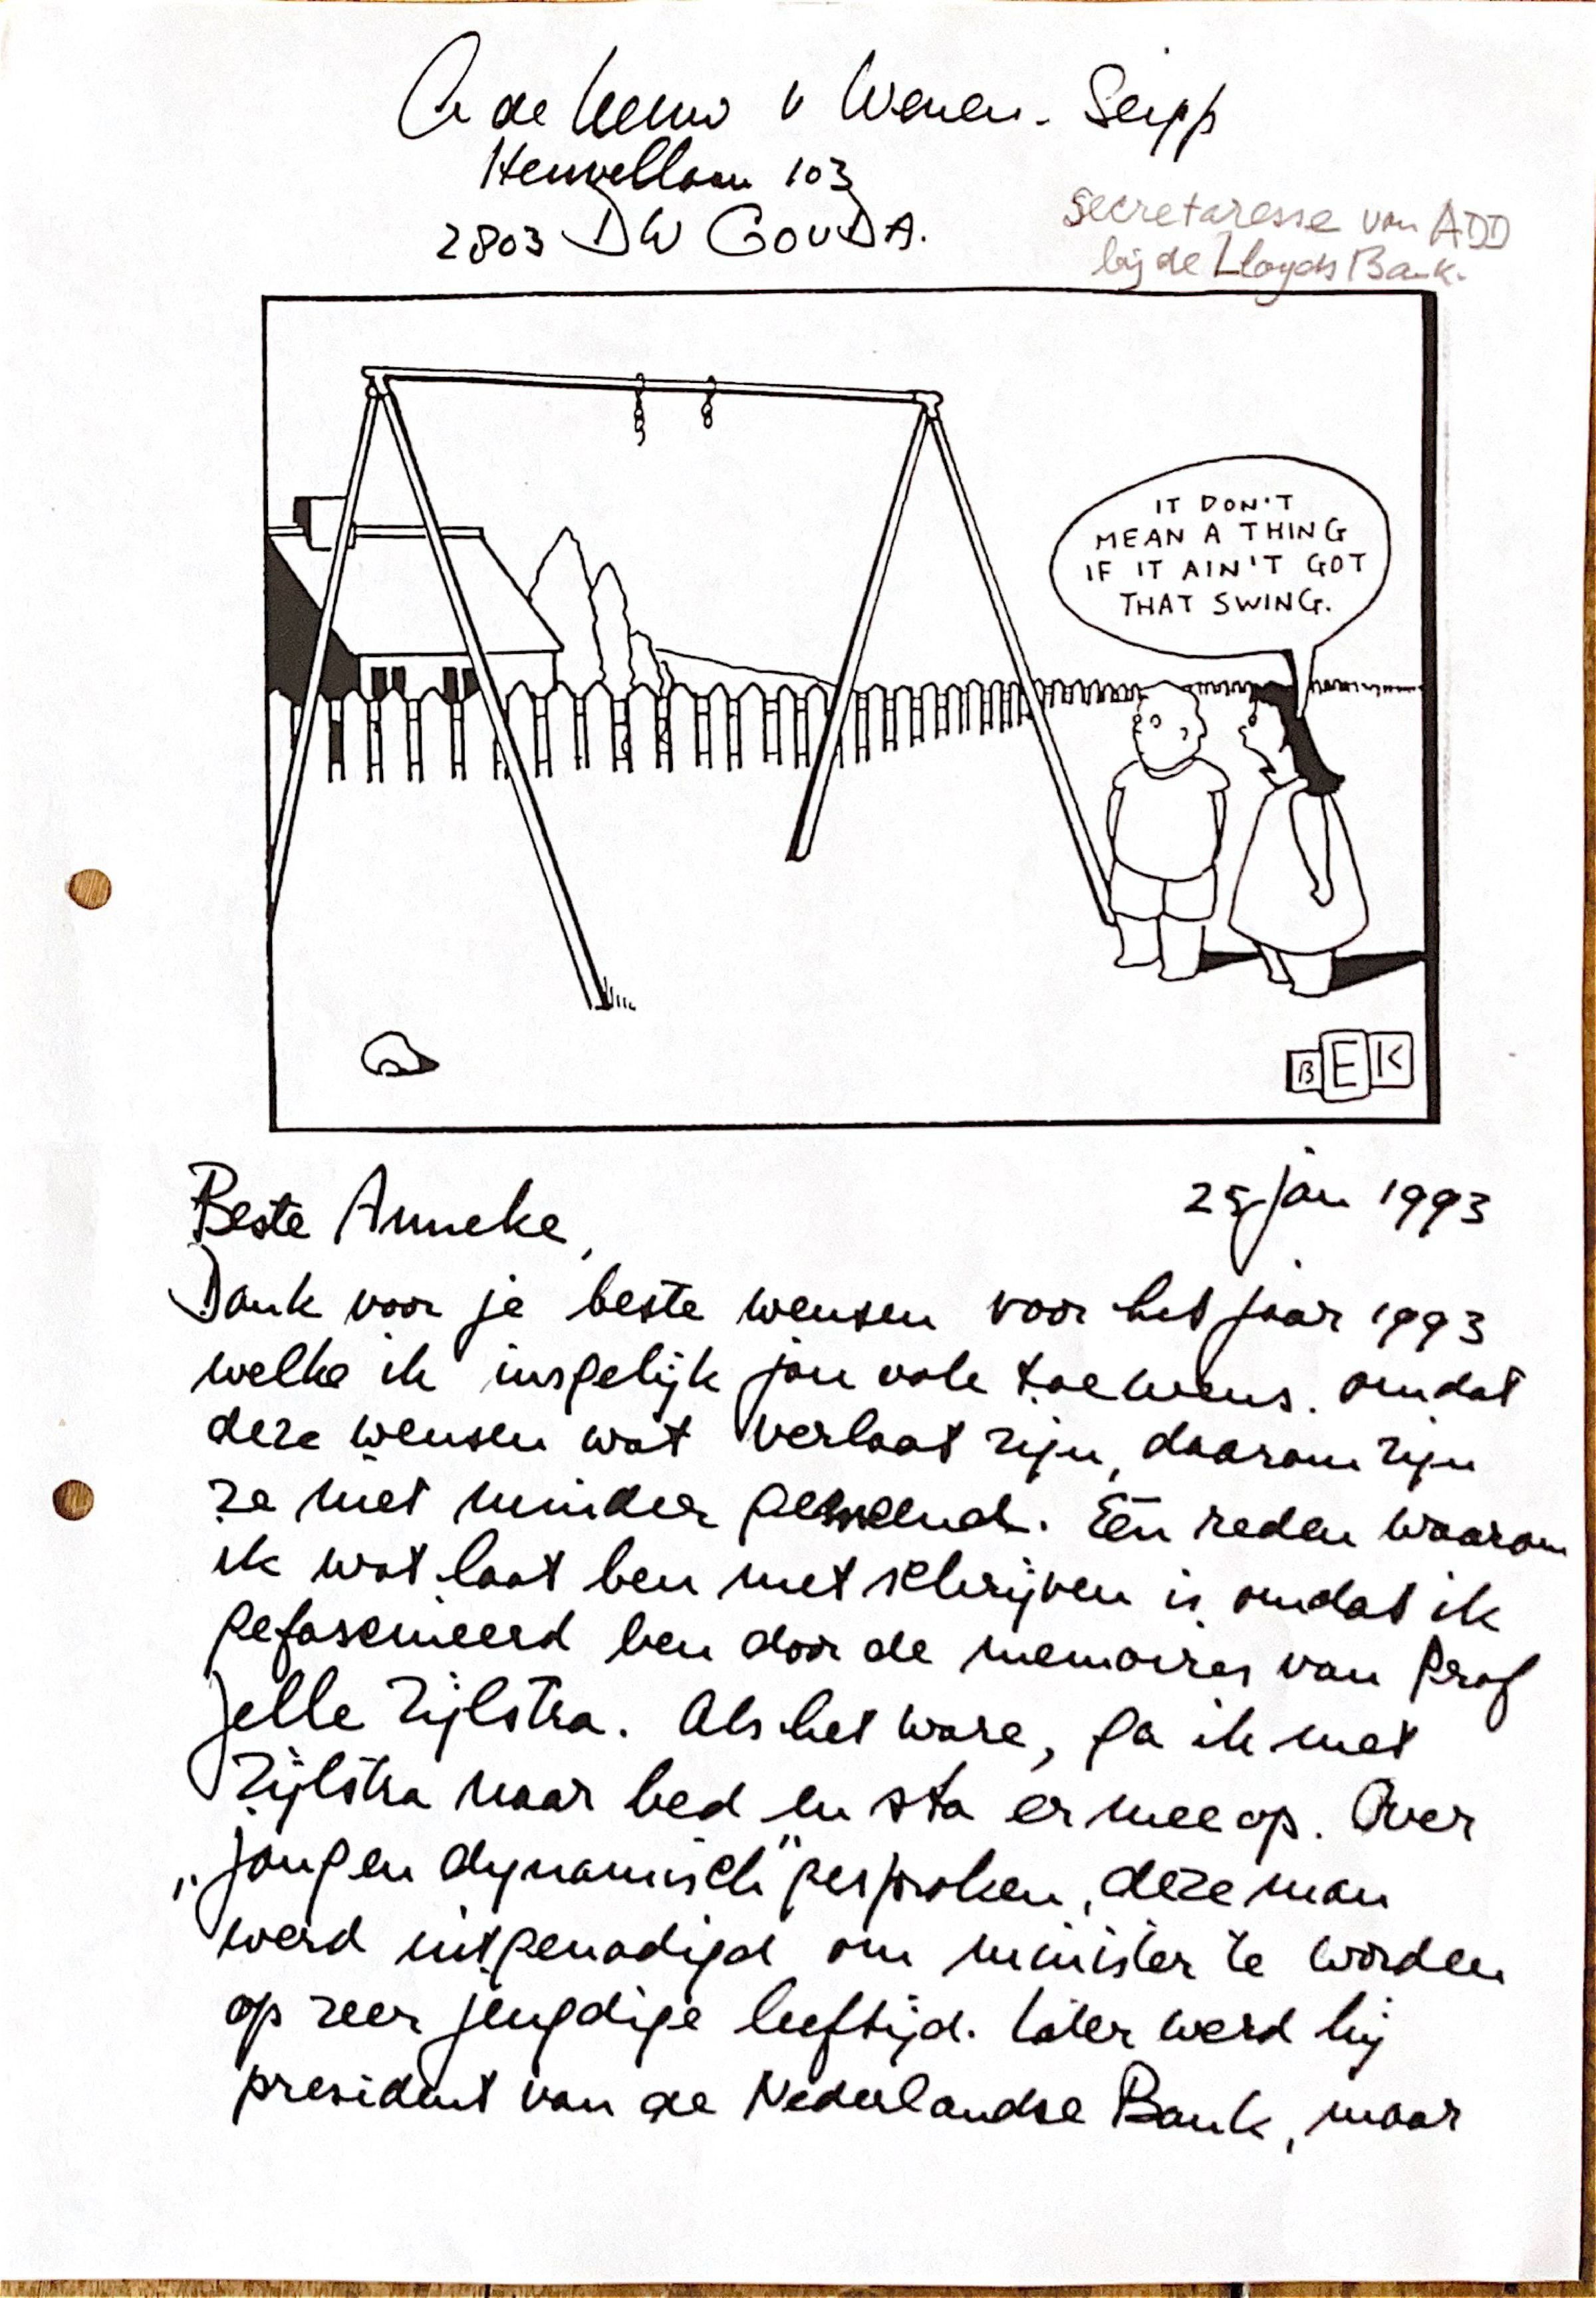 A de Leeuw v Wenen - Seipp
Heuvellaan 103
2803 DW GOUDA.
secretaresse van ADD
bij de Lloyds Bank.
IT DON'T
MEAN A THING
IF IT AIN'T GOT
THAT SWING.
BEK
25 jan 1993
Beste Anneke,
Dank voor je beste wensen voor het jaar 1993
welke ik insgelijk jou ook toewens. omdat
deze wensen wat verlaat zijn, daarom zijn
ze niet minder gemeend. Eén reden waarom
ik wat laat ben met schrijven is omdat ik
gefascineerd ben door de memoires van Prof
Jelle Zijlstra. Als het ware, ga ik met
Zijlstra naar bed en sta er mee op. Over
„jong en dynamisch" gesproken, deze man
werd uitgenodigd om minister te worden
op zeer jeugdige leeftijd. Later werd hij
president van de Nederlandse Bank, maar